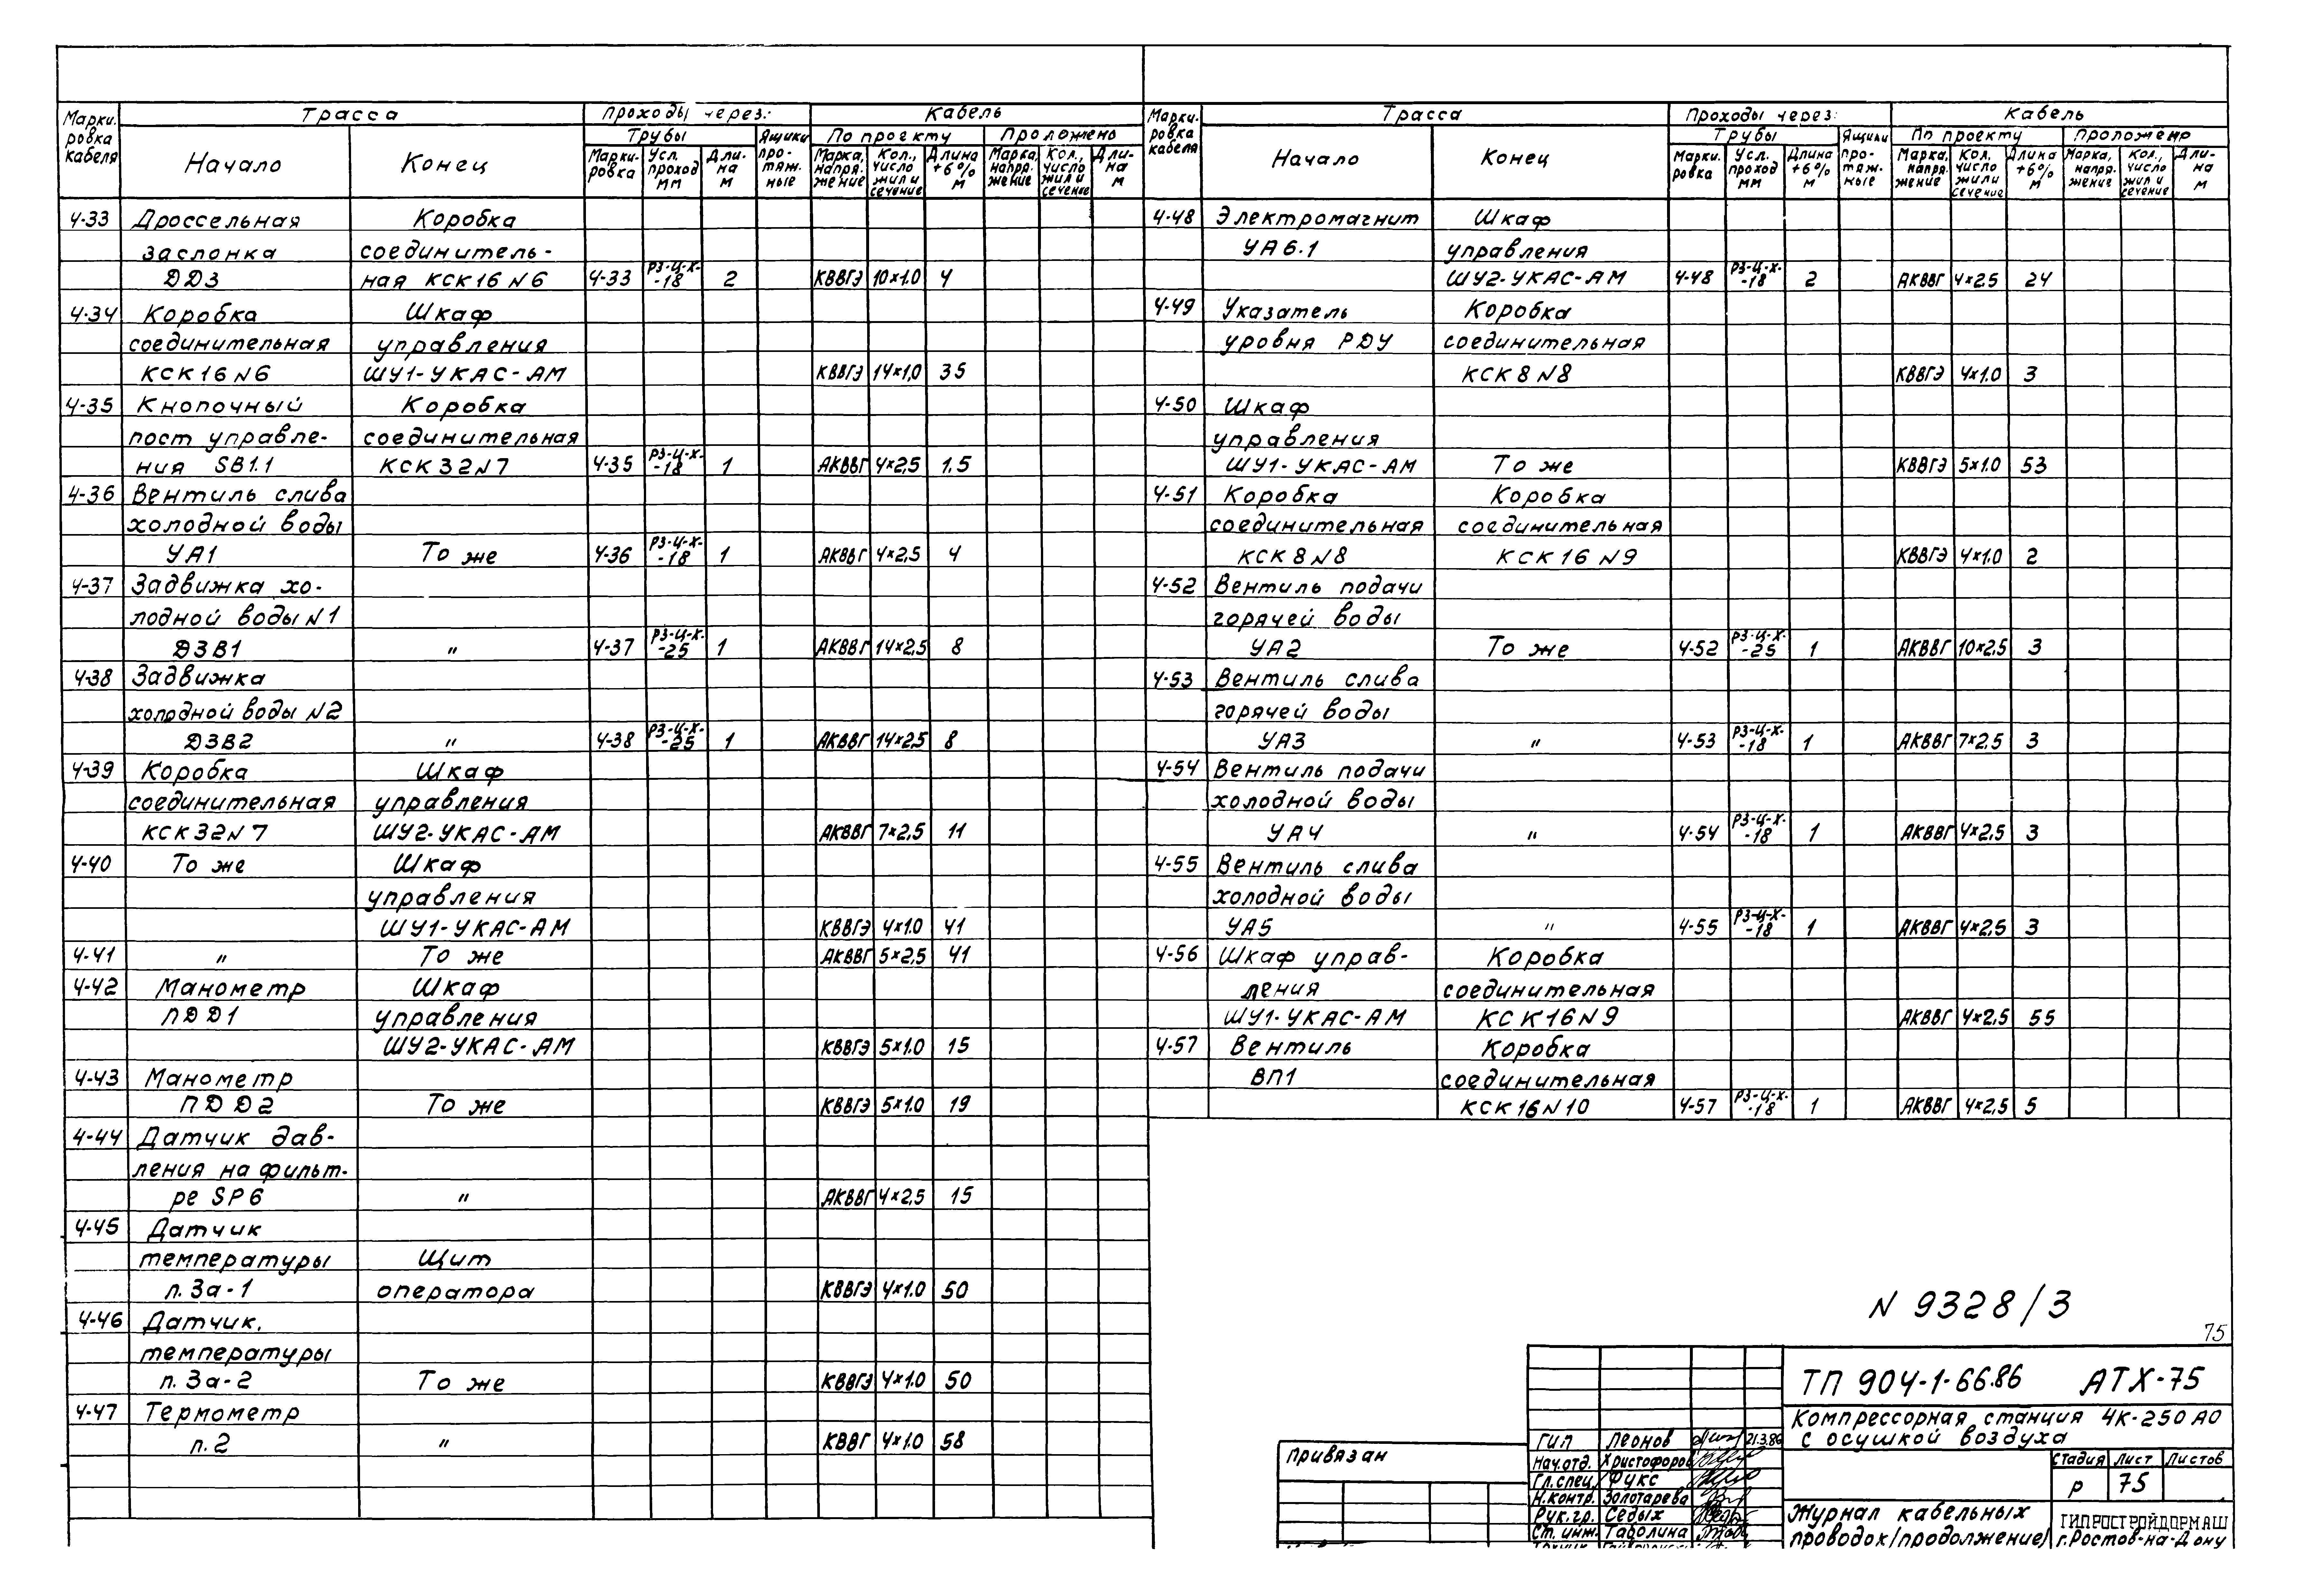 Марки. Трасса Проходы через: Кабель
ровка Трубы Ящики По проекту Проложено
кабеля Начало Конец Марки- Усл. Дли- про- Марка, Кол., Длина Марка, Кол., Дли-
ровка проход на тяж. напря- число +6% напря- число на
мм м ные жение жил и м жение жил и м
сечение сечение
4-33 Дроссельная Коробка
заслонка соединитель-
ДД3 ная КСК16 N6 4-33 РЗ-Ц-Х- -18 2 КВВГЭ 10×1.0 4
4-34 Коробка Шкаф
соединительная управления
КСК16 N6 ШУ1-УКАС-АМ КВВГЭ 14×1,0 35
4-35 Кнопочный Коробка
пост управле- соединительная
ния SB1.1 КСК32N7 4-35 РЗ-Ц-Х- -18 1 АКВВГ 4×2,5 1,5
4-36 Вентиль слива
холодной воды
УА1 То же 4-36 РЗ-Ц-Х- -18 1 АКВВГ 4×2,5 4
4-37 Задвижка хо-
лодной воды N1
ДЗВ1 " 4-37 РЗ-Ц-Х- -25 1 АКВВГ 14×2,5 8
4-38 Задвижка
холодной воды N2
ДЗВ2 " 4-38 РЗ-Ц-Х- -25 1 АКВВГ 14×2,5 8
4-39 Коробка Шкаф
соединительная управления
КСК32N7 ШУ2-УКАС-АМ АКВВГ 7×2,5 11
4-40 То же Шкаф
управления
ШУ1-УКАС-АМ КВВГЭ 4×1.0 41
4-41 " То же АКВВГ 5×2,5 41
4-42 Манометр Шкаф
ПДД1 управления
ШУ2-УКАС-АМ КВВГЭ 5×1.0 15
4-43 Манометр
ПДД2 То же КВВГЭ 5×1.0 19
4-44 Датчик дав-
ления на фильт-
ре SP6 " АКВВГ 4×2,5 15
4-45 Датчик
температуры Щит
п. 3а-1 оператора КВВГЭ 4×1.0 50
4-46 Датчик.
температуры
п. 3а-2 То же КВВГЭ 4×1.0 50
4-47 Термометр
п. 2 " КВВГ 4×1.0 58
Марки- Трасса Проходы через: Кабель
ровка Трубы Ящики По проекту Проложено
кабеля Начало Конец Марки. Усл. Длина про- Марка, Кол. Длина Марка, Кол., Дли-
ровка проход +6% тяж. напря- число +6% напря- число на
мм м ные жение жил и м жение жил и м
сечение сечение
4-48 Электромагнит Шкаф
УА6.1 управления
ШУ2-УКАС-АМ 4-48 РЗ-Ц-Х- -18 2 АКВВГ 4×2.5 24
4-49 Указатель Коробка
уровня РДУ соединительная
КСК8N8 КВВГЭ 4×1.0 3
4-50 Шкаф
управления
ШУ1-УКАС-АМ То же КВВГЭ 5×1.0 53
4-51 Коробка Коробка
соединительная соединительная
КСК8N8 КСК16 N9 КВВГЭ 4×1.0 2
4-52 Вентиль подачи
горячей воды
УА2 То же 4-52 РЗ-Ц-Х- -25 1 АКВВГ 10×2,5 3
4-53 Вентиль слива
горячей воды
УА3 " 4-53 РЗ-Ц-Х- -18 1 АКВВГ 7×2,5 3
4-54 Вентиль подачи
холодной воды
УА4 " 4-54 РЗ-Ц-Х- -18 1 АКВВГ 4×2,5 3
4-55 Вентиль слива
холодной воды
УА5 " 4-55 РЗ-Ц-Х- -18 1 АКВВГ 4×2,5 3
4-56 Шкаф управ- Коробка
ления соединительная
ШУ1-УКАС-АМ КСК16N9 АКВВГ 4×2,5 55
4-57 Вентиль Коробка
ВП1 соединительная
КСК16N10 4-57 РЗ-Ц-Х- -18 1 АКВВГ 4×2,5 5
N 9328/3
75
ТП 904-1-66.86 АТХ-75
Компрессорная станция 4К-250АО
с осушкой воздуха
Привязан
ГИП Леонов 21.3.86
Нач.отд. Христофоров
Гл.спец. Фукс
Н.контр. Золотарева
Рук.гр. Седых
Ст. инж. Таволина
Стадия Лист Листов
Р 75
Журнал кабельных
проводок (продолжение)
ГИПРОСТРОЙДОРМАШ
г.Ростов-на-Дону